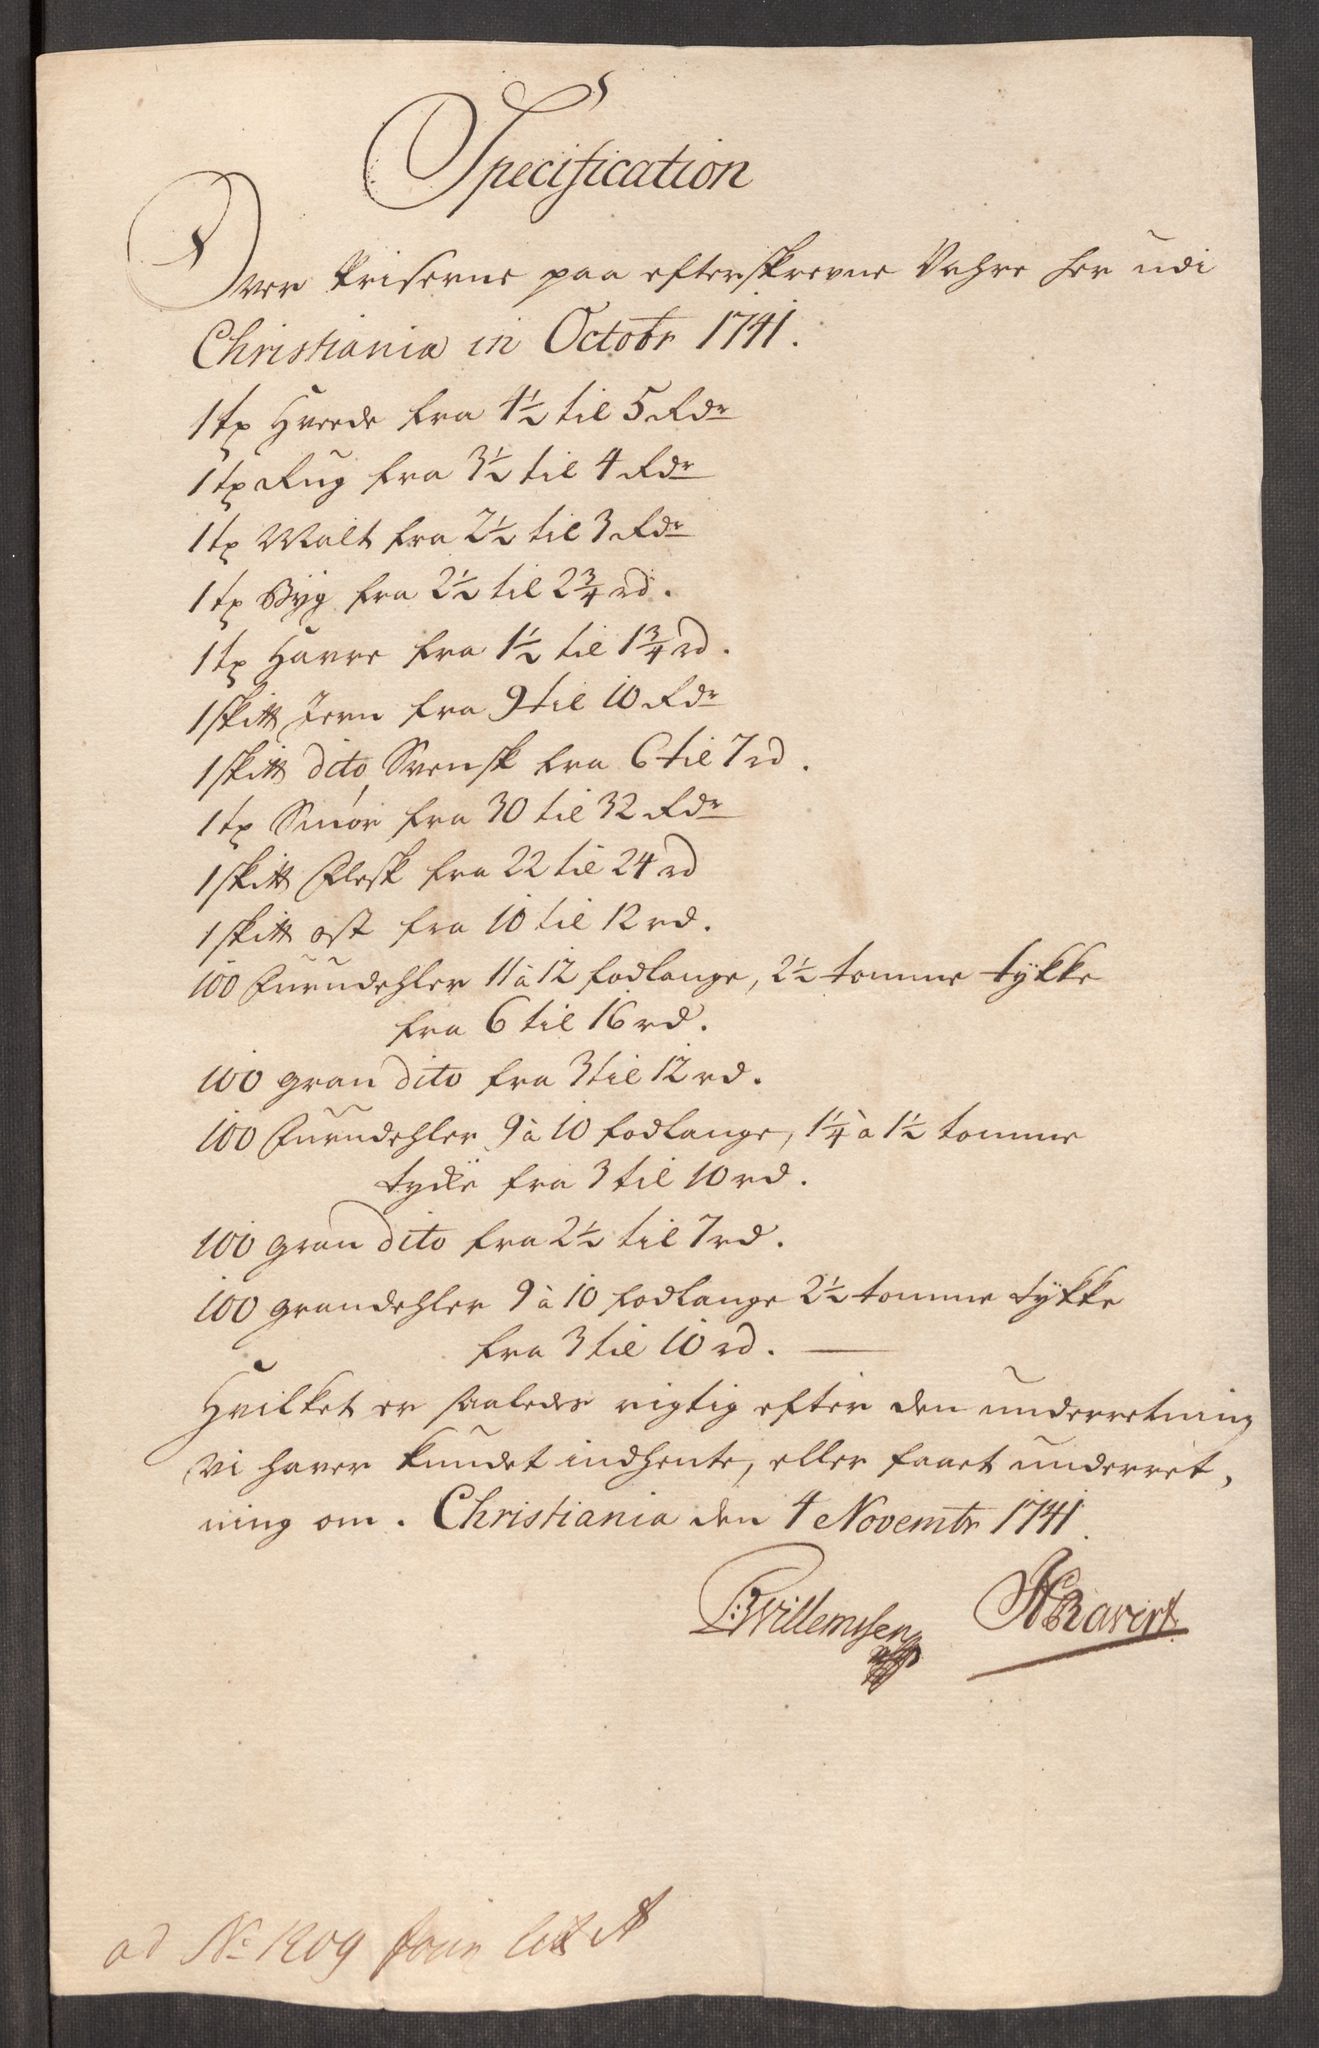 Specification
Over Priserne paa efterskrevne Vahre her udi
Christiania in Octobr 1741.
1 tp Hvede fra 4½ til 5 Rdr
1 tp Rug fra 3½ til 4 Rdr
1 tp Malt fra 2½ til 3 Rdr
1 tp Byg fra 2½ til 2¾ rd.
1 tp Havre fra 1½ til 1¾ rd.
1 skitt Jern fra 9 til 10 Rdr
1 skitt dito Svensk fra 6 til 7 rd.
1 tp Smør fra 30 til 32 Rdr
1 skitt Flesk fra 22 til 24 rd
1 skitt ost fra 10 til 12 rd.
100 Furudehler 11 à 12 fodlange, 2½ tomme tÿkke
fra 6 til 16 rd.
100 gran dito fra 3 til 12 rd.
100 Furudehler 9 à 10 fodlange, 1¼ à 1½ tomme
tycke fra 3 til 10 rd.
100 gran dito fra 2½ til 7 rd.
100 grandehler 9 à 10 fodlange 2½ tomme tÿkke
fra 3 til 10 rd. —
Hvilket er saaledes rigtig efter den underretning
vi haver kundet indhente, eller faaet underret,
ning om. Christiania den 4 Novembr 1741.
Willemssen Ravert
ad No 1209 litt A